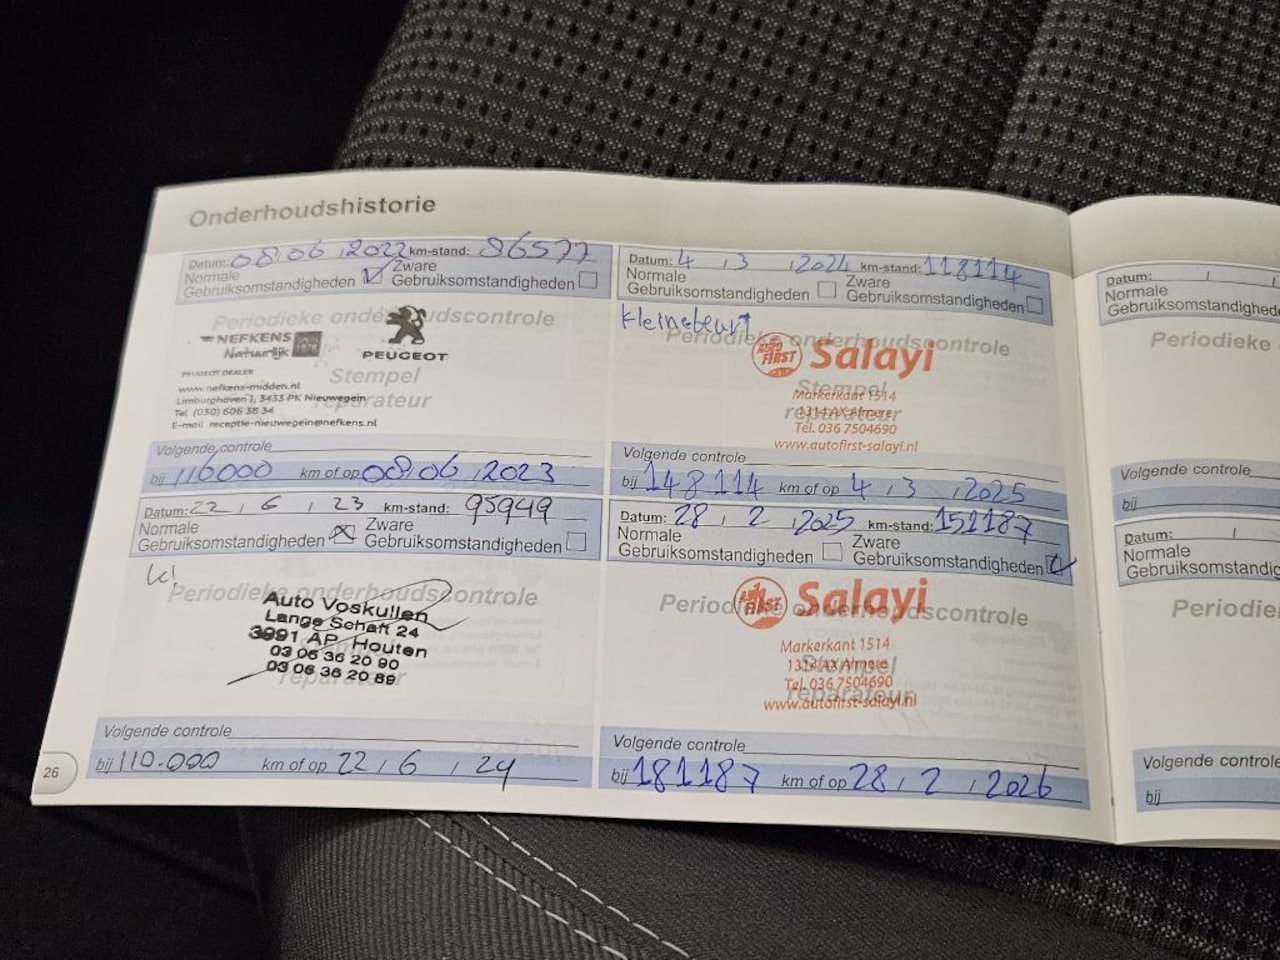 Onderhoudshistorie
Datum: 08 , 06 , 2022 km-stand: 86577
Normale Gebruiksomstandigheden ☑ Zware Gebruiksomstandigheden ☐
Periodieke onderhoudscontrole
NEFKENS
Natuurlijk
PEUGEOT
Stempel
reparateur
PEUGEOT DEALER
www.nefkens-midden.nl
Limburghaven 1, 3433 PK Nieuwegein
Tel (030) 606 38 34
E-mail receptie-nieuwegein@nefkens.nl
Volgende controle
bij 116000 km of op 08 , 06 , 2023
Datum: 22 , 6 , 23 km-stand: 95949
Normale Gebruiksomstandigheden ☒ Zware Gebruiksomstandigheden ☐
Periodieke onderhoudscontrole
Auto Voskuilen
Lange Schaft 24
3991 AP Houten
03 06 36 20 90
03 06 36 20 89
reparateur
Volgende controle
bij 110.000 km of op 22 , 6 , 24
26
Datum: 4 , 3 , 2024 km-stand: 118114
Normale Gebruiksomstandigheden ☐ Zware Gebruiksomstandigheden ☐
kleinebeurt
Periodieke onderhoudscontrole
AUTO FIRST Salayi
Stempel
reparateur
Markerkant 1514
1314 AX Almere
Tel. 036 7504690
www.autofirst-salayi.nl
Volgende controle
bij 148114 km of op 4 , 3 , 2025
Datum: 28 , 2 , 2025 km-stand: 151187
Normale Gebruiksomstandigheden ☐ Zware Gebruiksomstandigheden ☑
Periodieke onderhoudscontrole
AUTO FIRST Salayi
Stempel
reparateur
Markerkant 1514
1314 AX Almere
Tel. 036 7504690
www.autofirst-salayi.nl
Volgende controle
bij 181187 km of op 28 , 2 , 2026
Datum: , ,
Normale
Gebruiksomstandighed
Periodieke
Volgende controle
bij
Datum: ,
Normale
Gebruiksomstandig
Periodie
Volgende controle
bij